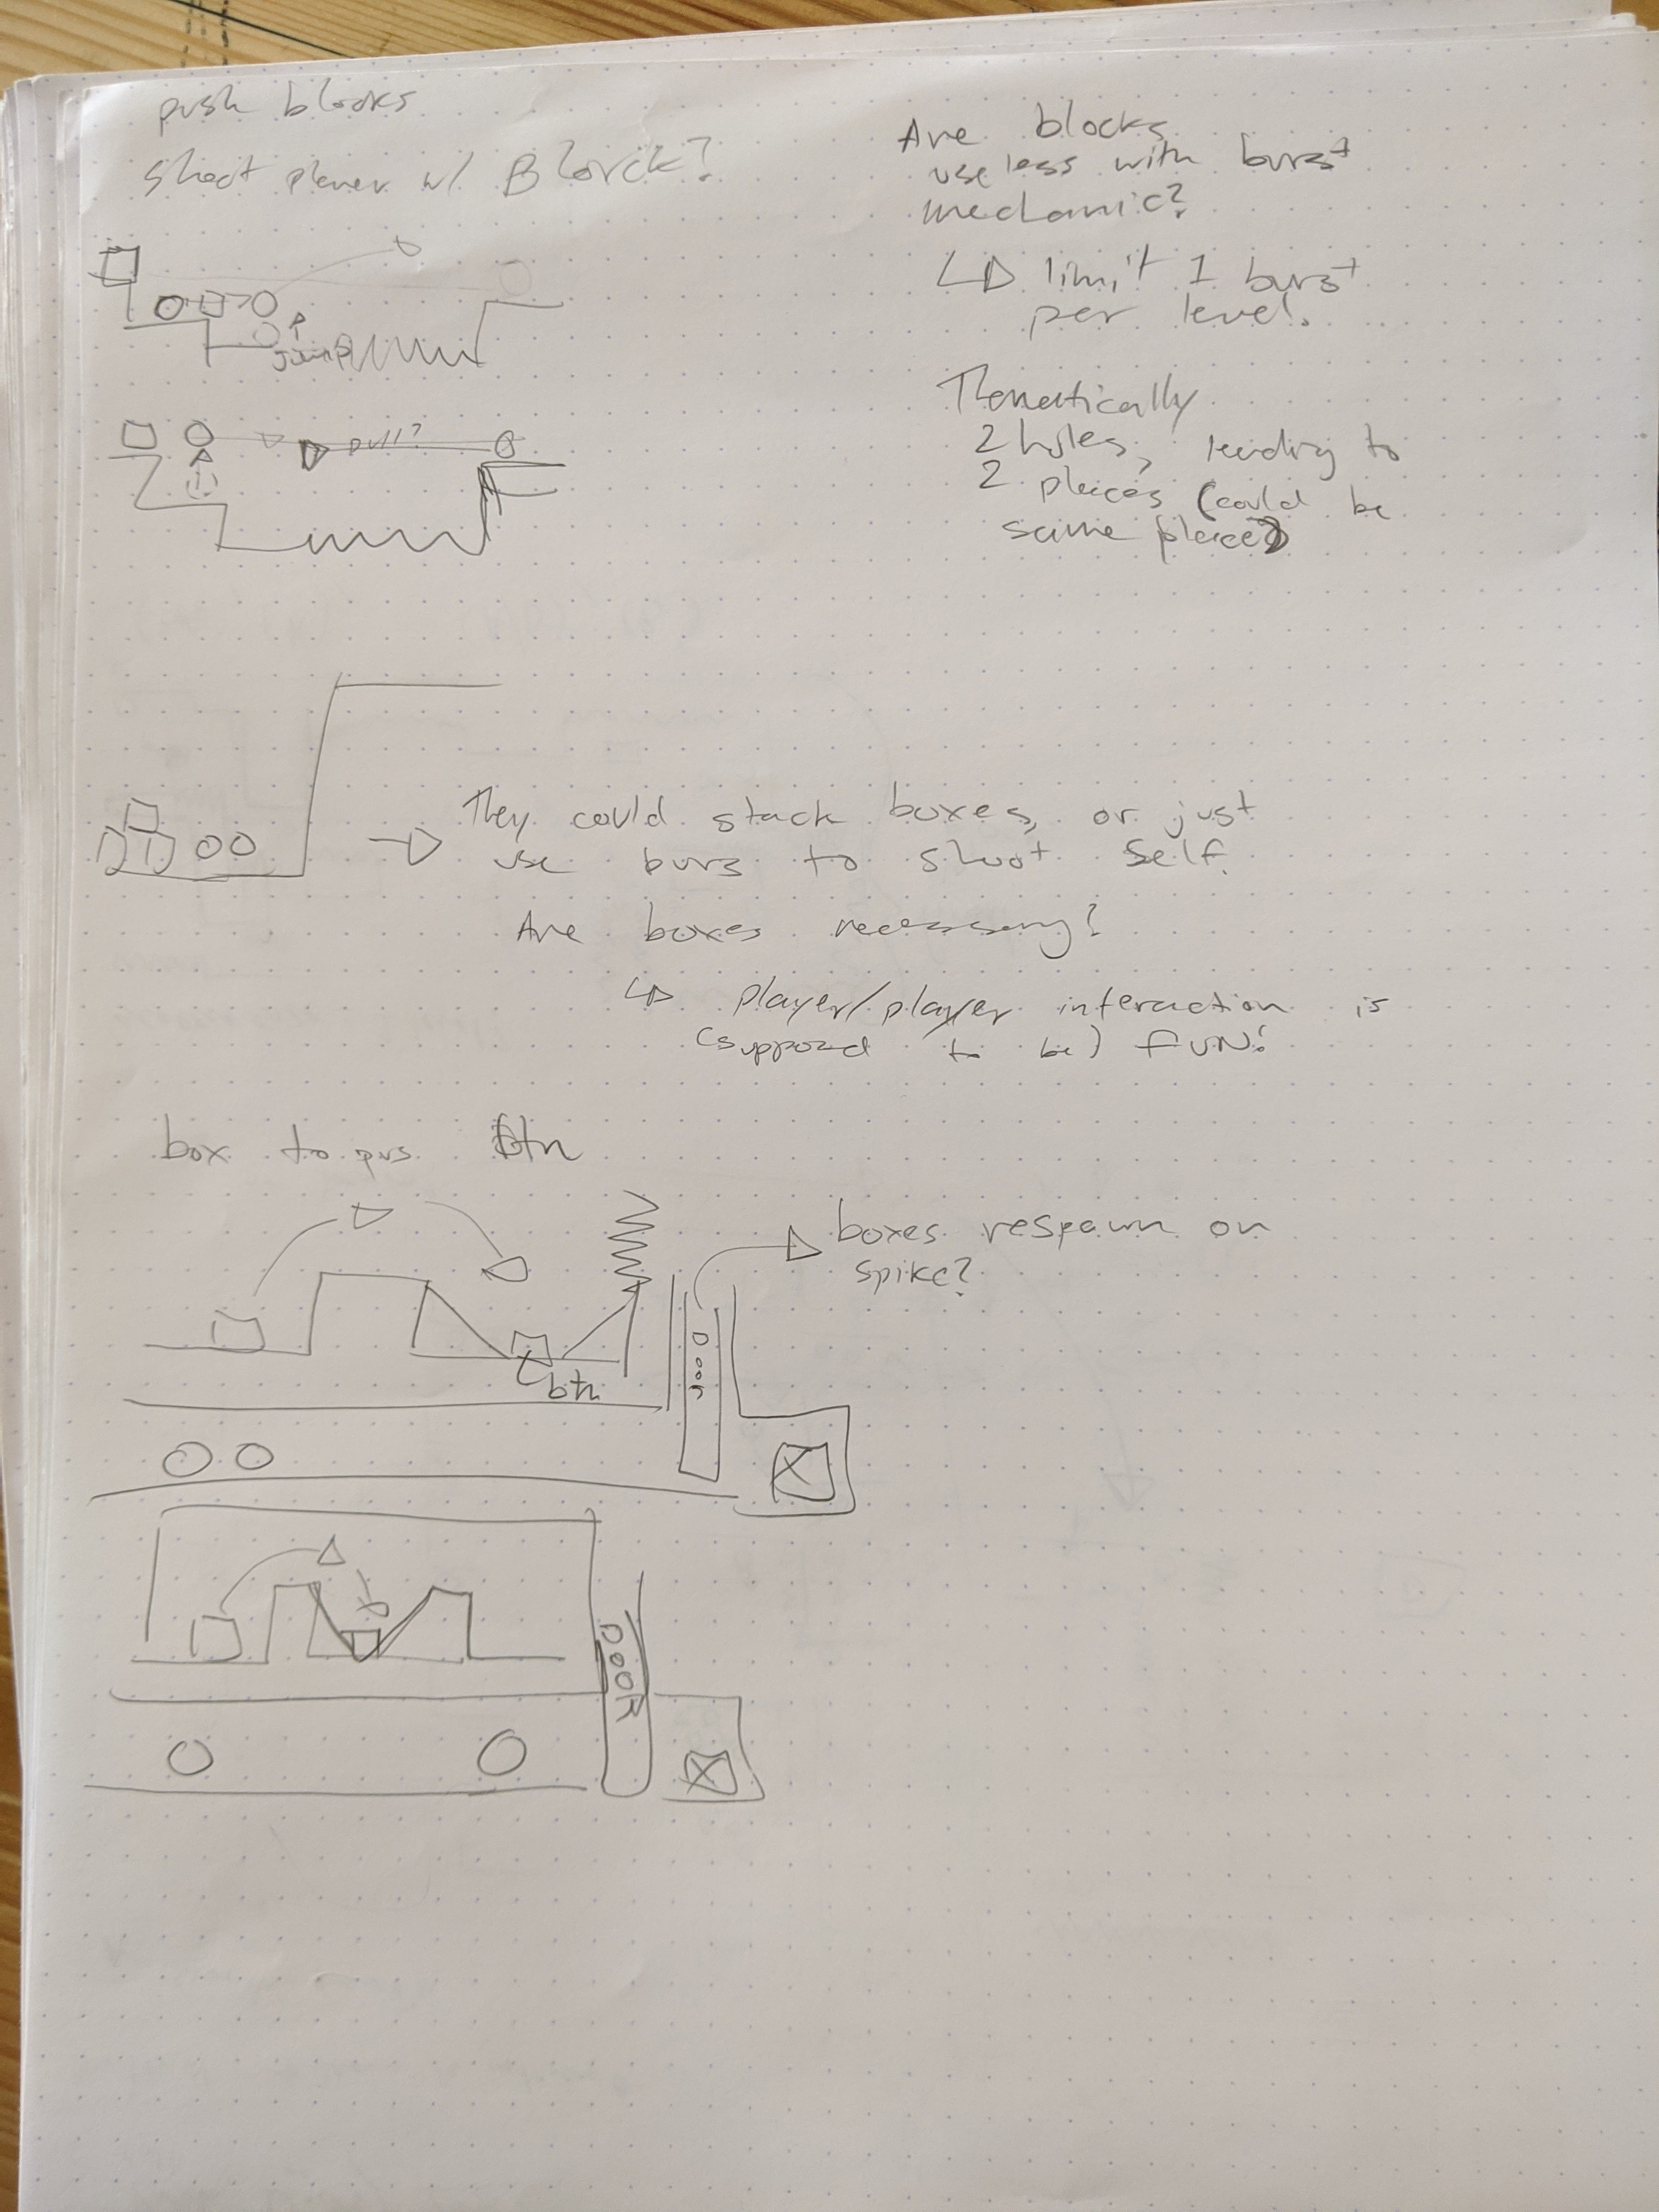 push blocks
shoot player w/ Block?
Are blocks
useless with burst
mechanic?
limit 1 burst
per level.
jump
pull?
Thematically
2 holes, leading to
2 places (could be
same place?)
They could stack boxes, or just
use burs to shoot self.
Are boxes necessary?
player/player interaction is
(supposed to be) fun!
box to pus btn
boxes respawn on
spike?
Door
btn
DOOR